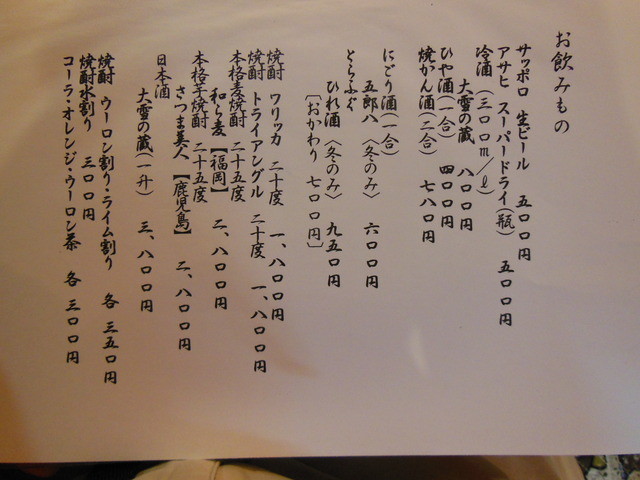 お飲みもの
サッポロ 生ビール 五〇〇円
アサヒ スーパードライ(瓶) 五〇〇円
冷酒(三〇〇m/ℓ)
大雪の蔵 八〇〇円
ひや酒(一合) 四〇〇円
焼かん酒(二合) 七八〇円
にごり酒(一合)
五郎八〈冬のみ〉 六〇〇円
とらふぐ
ひれ酒〈冬のみ〉 九五〇円
[おかわり 七〇〇円]
焼酎 ワリッカ 二十度 一、八〇〇円
焼酎 トライアングル 二十度 一、八〇〇円
本格麦焼酎 二十五度
和ら麦【福岡】 二、八〇〇円
本格芋焼酎 二十五度
さつま美人【鹿児島】 二、八〇〇円
日本酒
大雪の蔵(一升) 三、八〇〇円
焼酎 ウーロン割り・ライム割り 各 三五〇円
焼酎水割り 三〇〇円
コーラ・オレンジ・ウーロン茶 各 三〇〇円